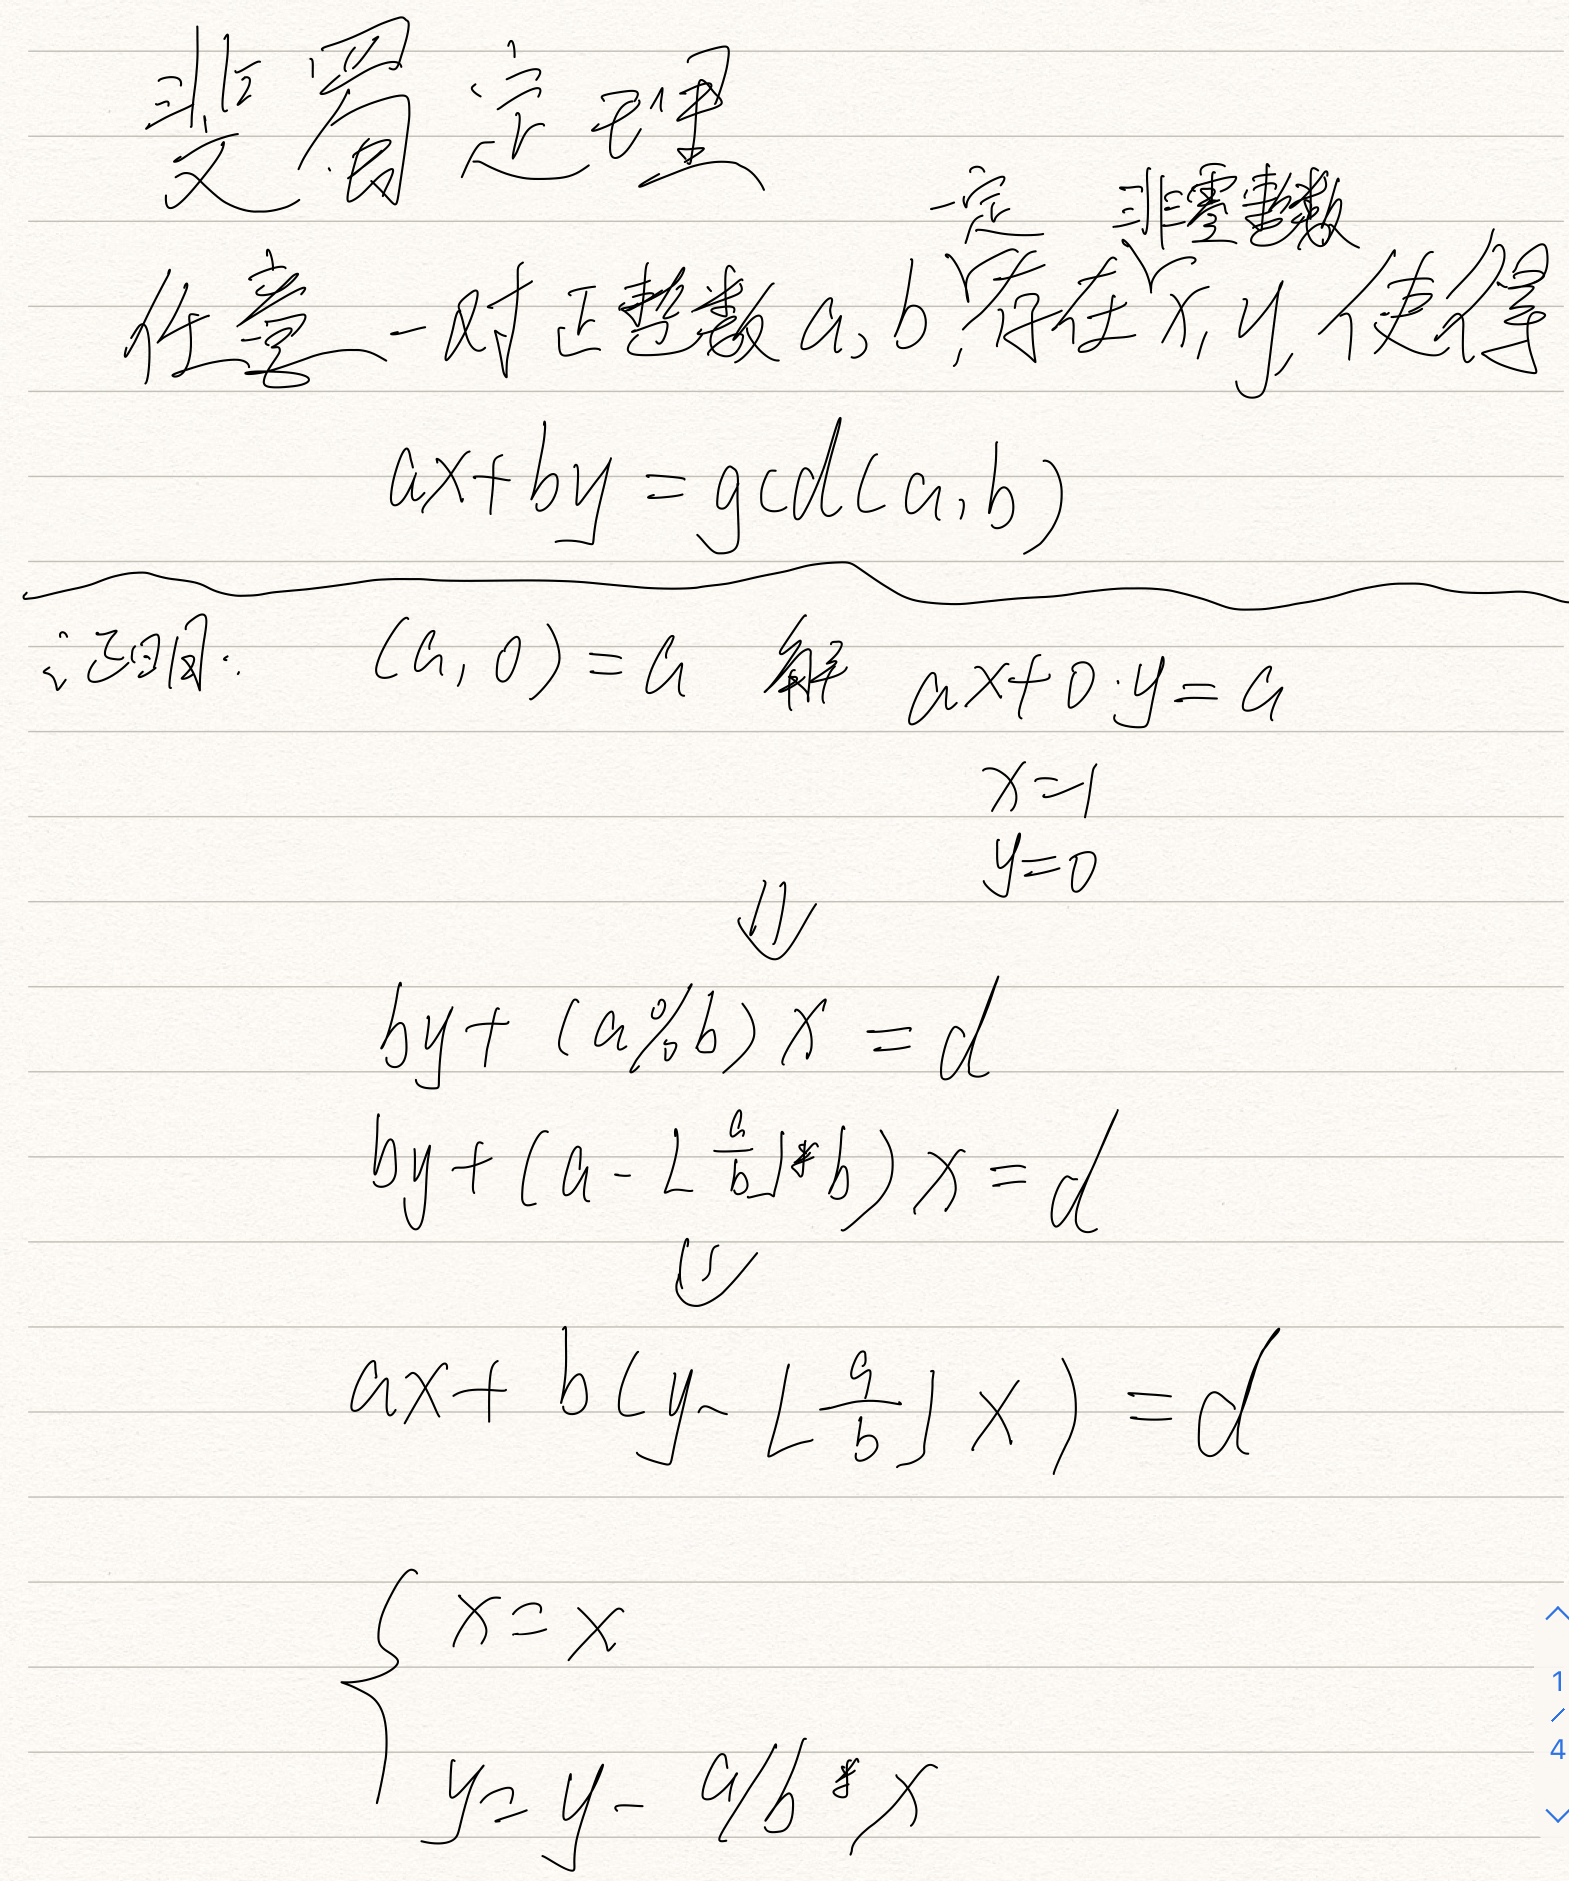 裴蜀定理
一定 非零整数
任意一对正整数a,b,存在x,y,使得
ax+by=gcd(a,b)
证明: (a,0)=a 解 ax+0·y=a
x=1
y=0
⇓
by+(a%b)x=d
by+(a-⌊a/b⌋*b)x=d
⇓
ax+b(y-⌊a/b⌋x)=d
x=x
y=y-a/b*x
1
/
4